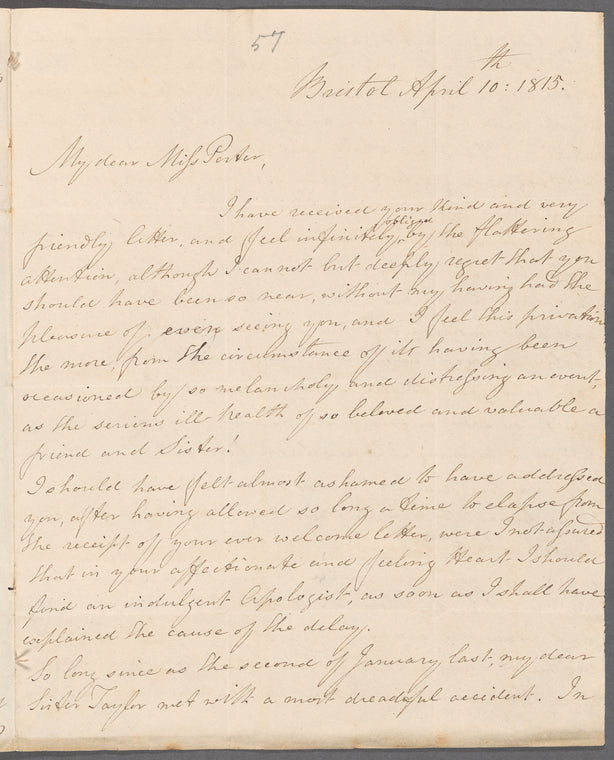 57
th
Bristol April 10: 1815.
My dear Miss Porter,
I have received your kind and very
obliged
friendly letter, and feel infinitely ^ by the flattering
attention, although I cannot but deeply regret that you
should have been so near, without my having had the
pleasure of even seeing you, and I feel this privation
the more, from the circumstance of its having been
occasioned by so melancholy and distressing an event,
as the serious ill health of so beloved and valuable a
friend and Sister!
I should have felt almost ashamed to have addressed
you, after having allowed so long a time to elapse from
the receipt of your ever welcome letter, were I not assured
that in your affectionate and feeling Heart I should
find an indulgent Apologist, as soon as I shall have
explained the cause of the delay.
So long since as the second of January last, my dear
Sister Taylor met with a most dreadful accident. In